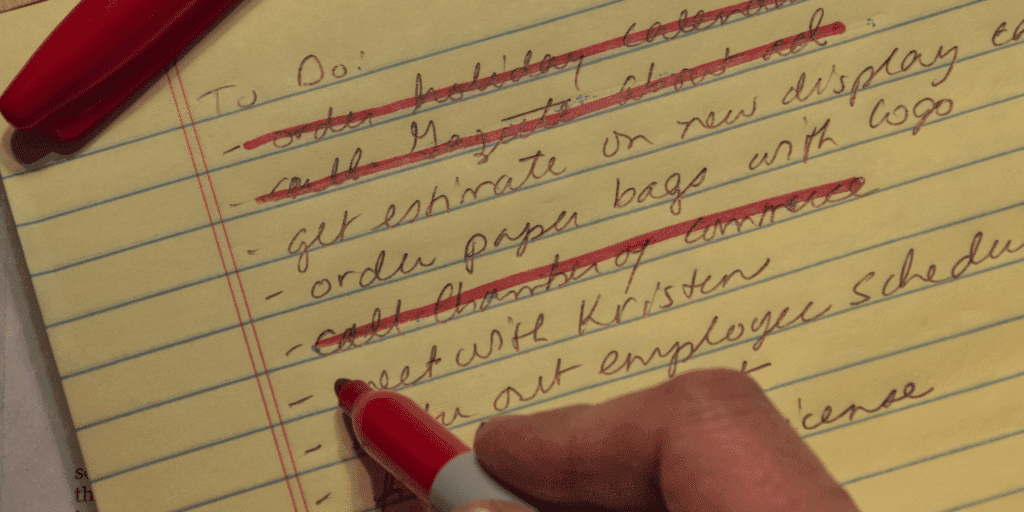 To Do:
- order holiday
- call Gazette about ad
- get estimate on new display
- order paper bags with logo
- call Chamber of commerce
- meet with Kristen
- out employee
-
-